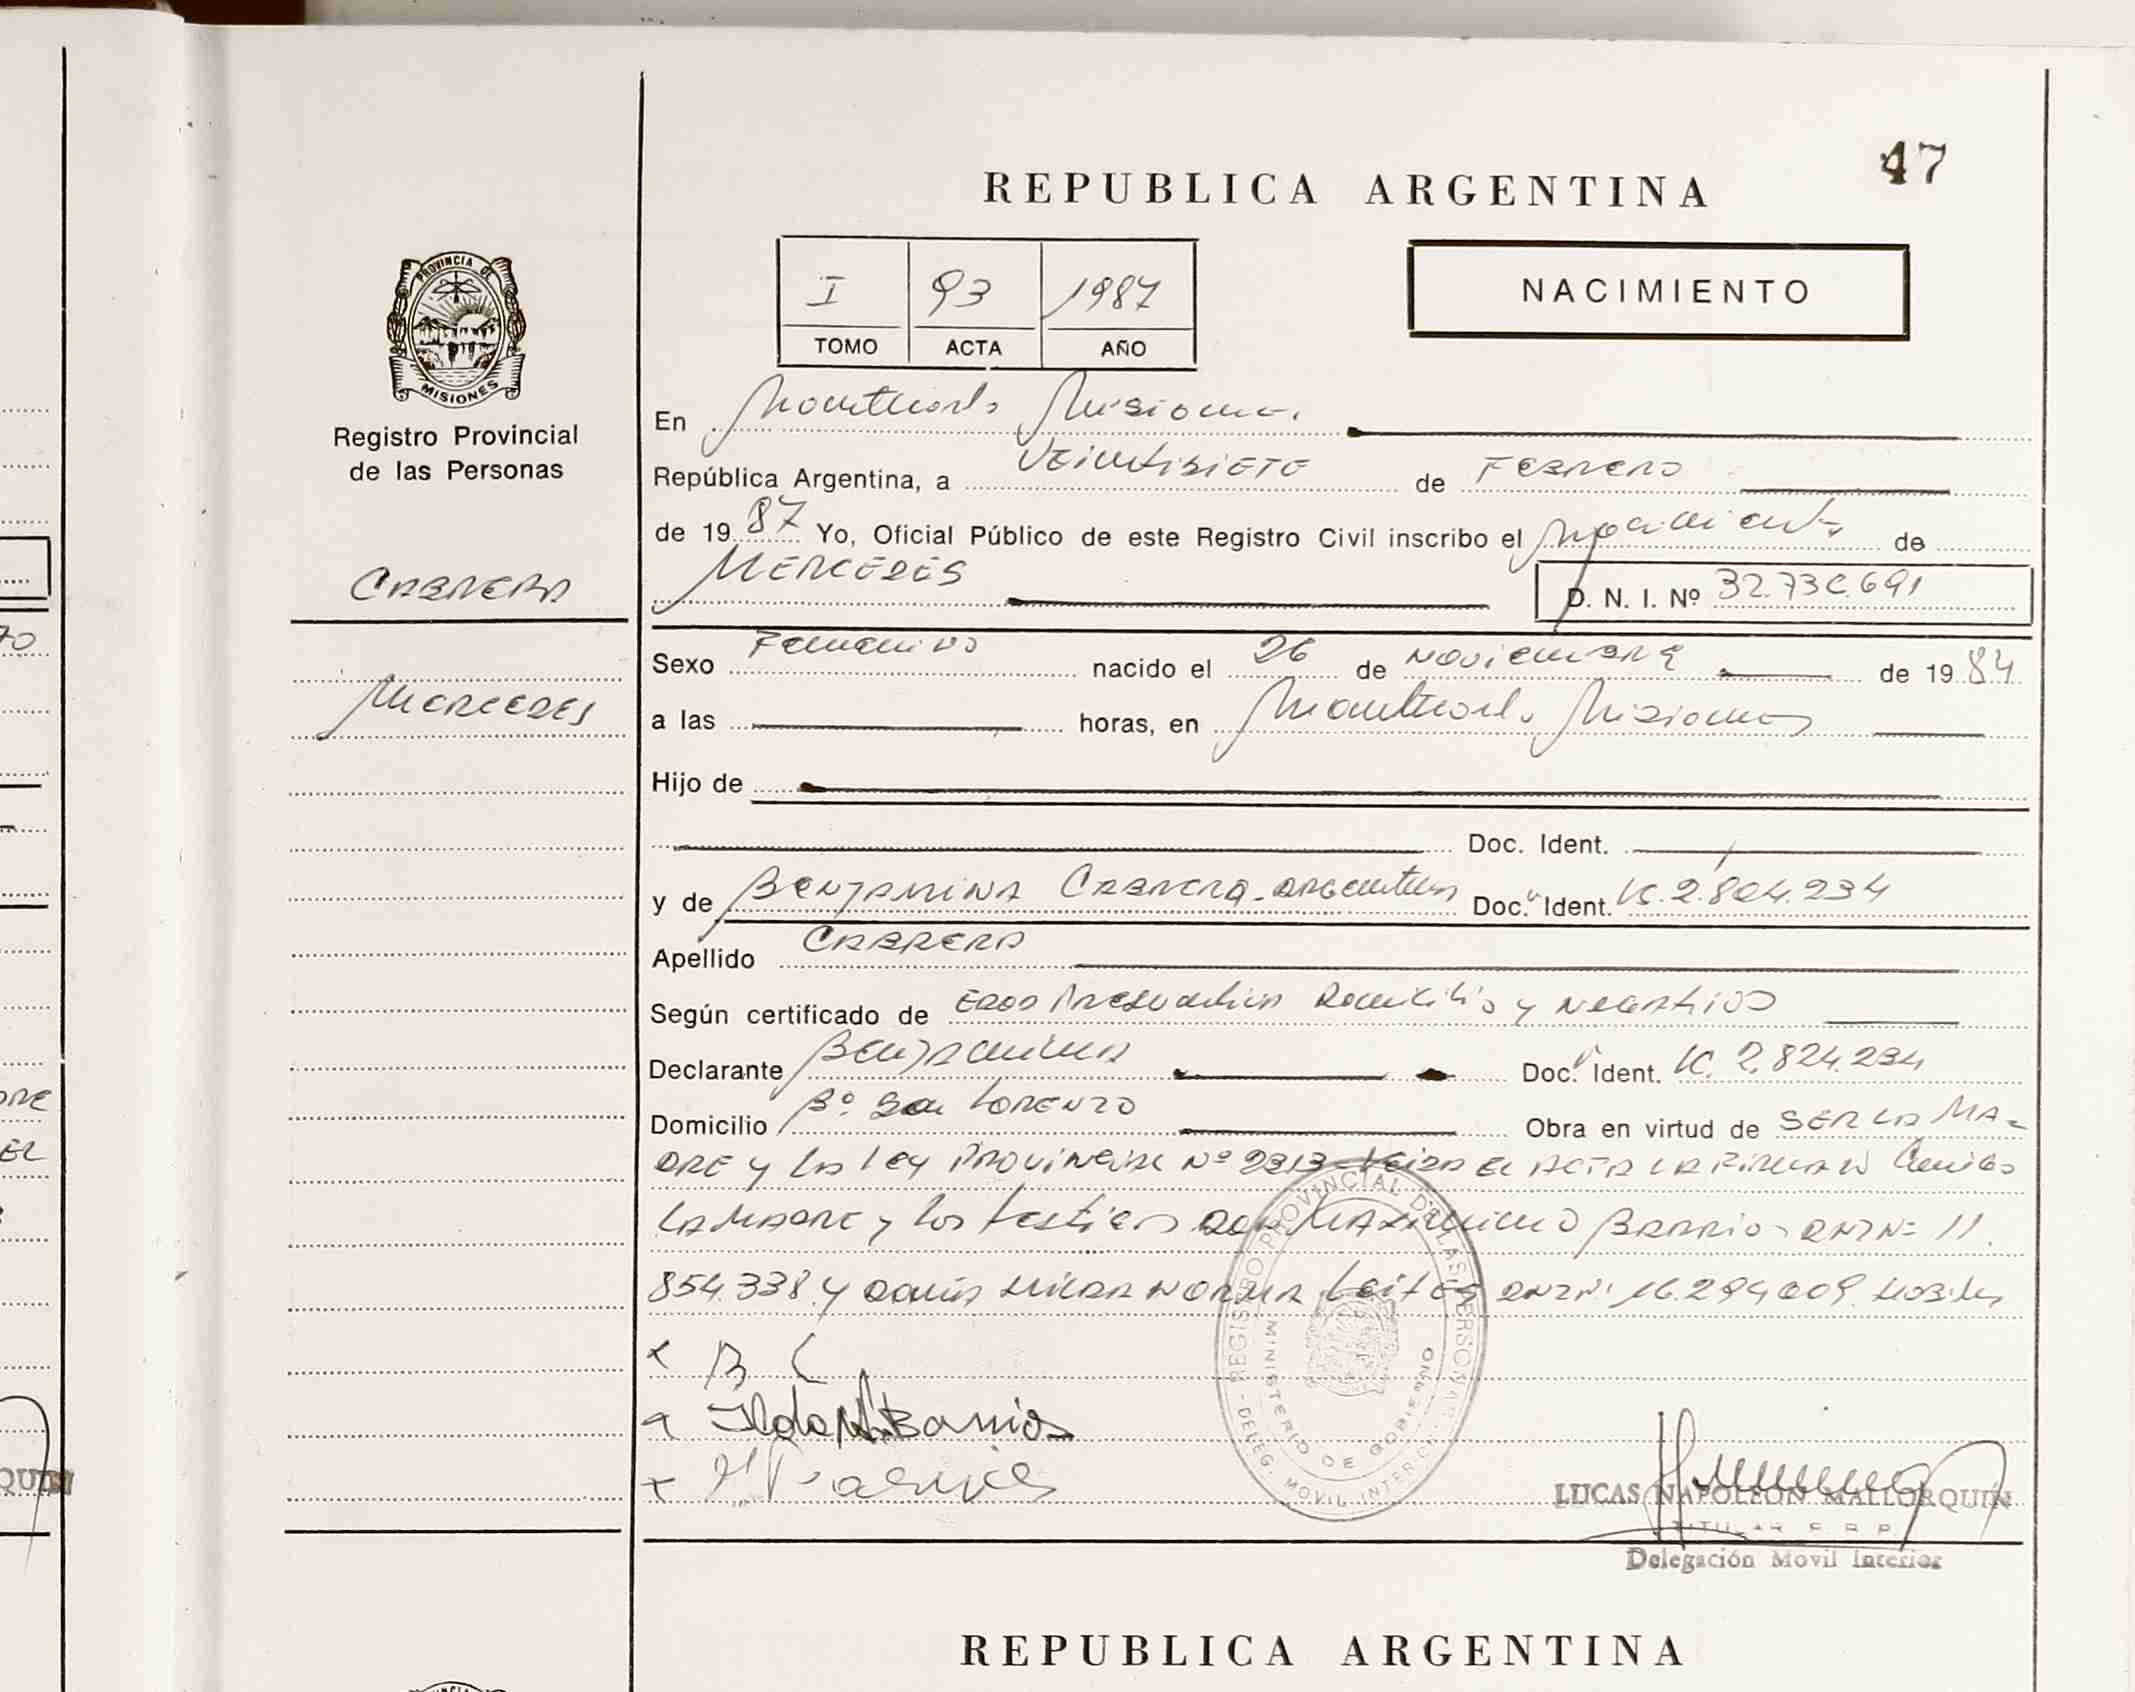 47
REPUBLICA ARGENTINA
I 93 1987
TOMO ACTA AÑO
NACIMIENTO
PROVINCIA DE
MISIONES
Registro Provincial
de las Personas
CABRERA
MERCEDES
En Montecarlo Misiones.
República Argentina, a VEINTISIETE de FEBRERO
de 1987 Yo, Oficial Público de este Registro Civil inscribo el Nacimiento de
MERCEDES
D. N. I. Nº 32.730.691
Sexo Femenino nacido el 26 de NOVIEMBRE de 1984
a las horas, en Montecarlo Misiones
Hijo de
Doc. Ident.
y de BENJAMINA CABRERA-ARGENTINA Doc. Ident. 2.824.234
Apellido CABRERA
Según certificado de EDAD PRESUNTIVA Domicilio y NEGATIVO
Declarante BENJAMINA Doc. Ident. 2.824.234
Domicilio Bº San LORENZO Obra en virtud de SER LA MA-
DRE y LA LEY PROVINCIAL Nº 2313-LEIDA EL ACTA LA FIRMAN Conmigo
LA MADRE y los testigos DON MAXIMINO BARRIOS DNI Nº 11.
854.338 y DOÑA NORMA DNI Nº 16.294.009
x B C
x Ildo M. Barrios
x
REGISTRO PROVINCIAL DE LAS PERSONAS
MINISTERIO DE GOBIERNO
DELEG. MOVIL INTERIOR
LUCAS NAPOLEON MALLORQUIN
TITULAR
Delegación Movil Interior
REPUBLICA ARGENTINA